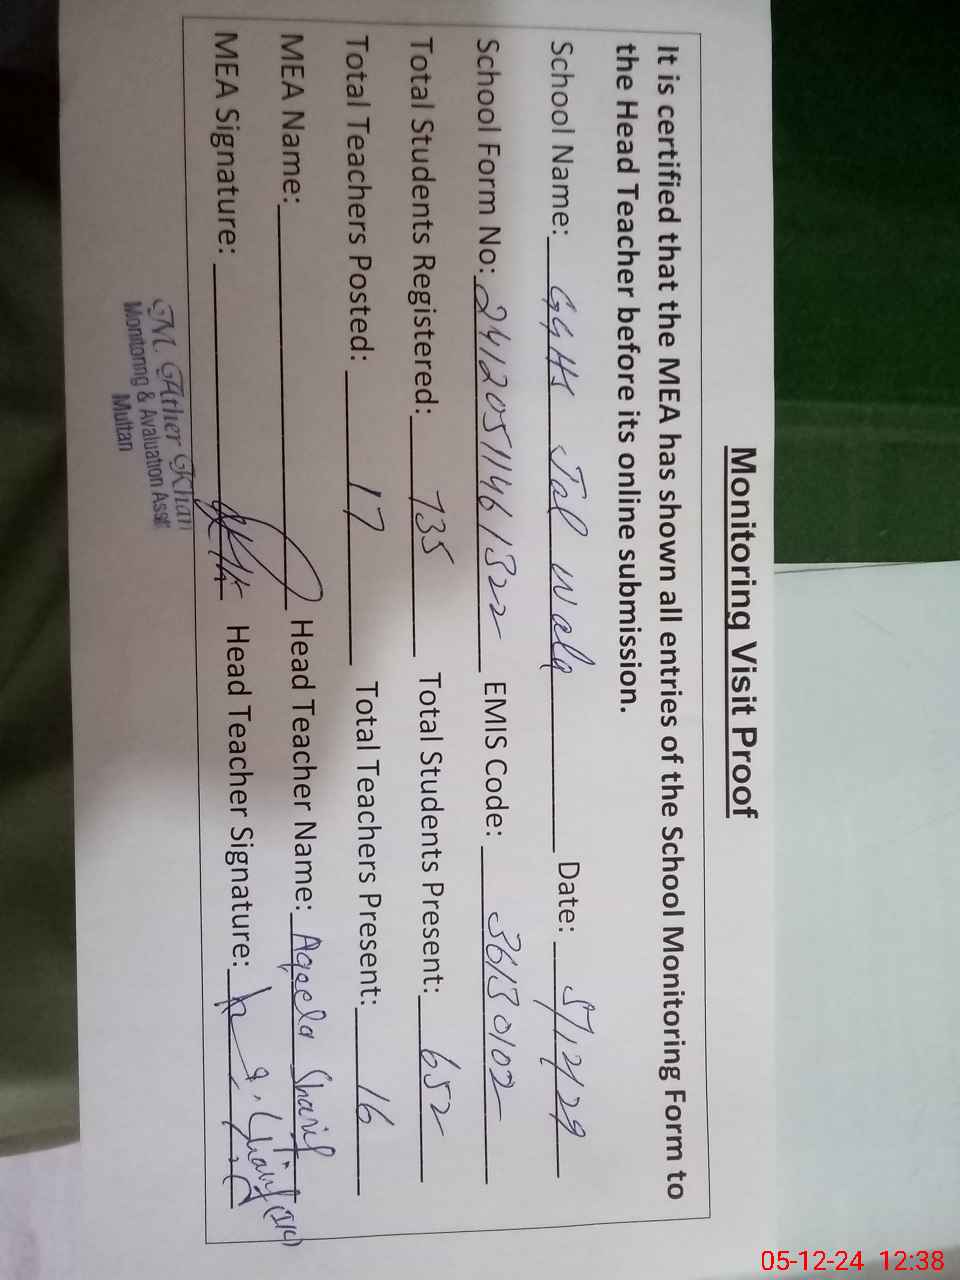 Monitoring Visit Proof
It is certified that the MEA has shown all entries of the School Monitoring Form to
the Head Teacher before its online submission.
School Name: GGHS Jal Wala Date: 5/12/24
School Form No: 24120511461322 EMIS Code: 36130102
Total Students Registered: 735 Total Students Present: 652
Total Teachers Posted: 17 Total Teachers Present: 16
MEA Name: Head Teacher Name: Aqeela Sharif
MEA Signature: Head Teacher Signature:
M. Ather Khan
Monitoring & Avaluation Asst
Multan
05-12-24 12:38